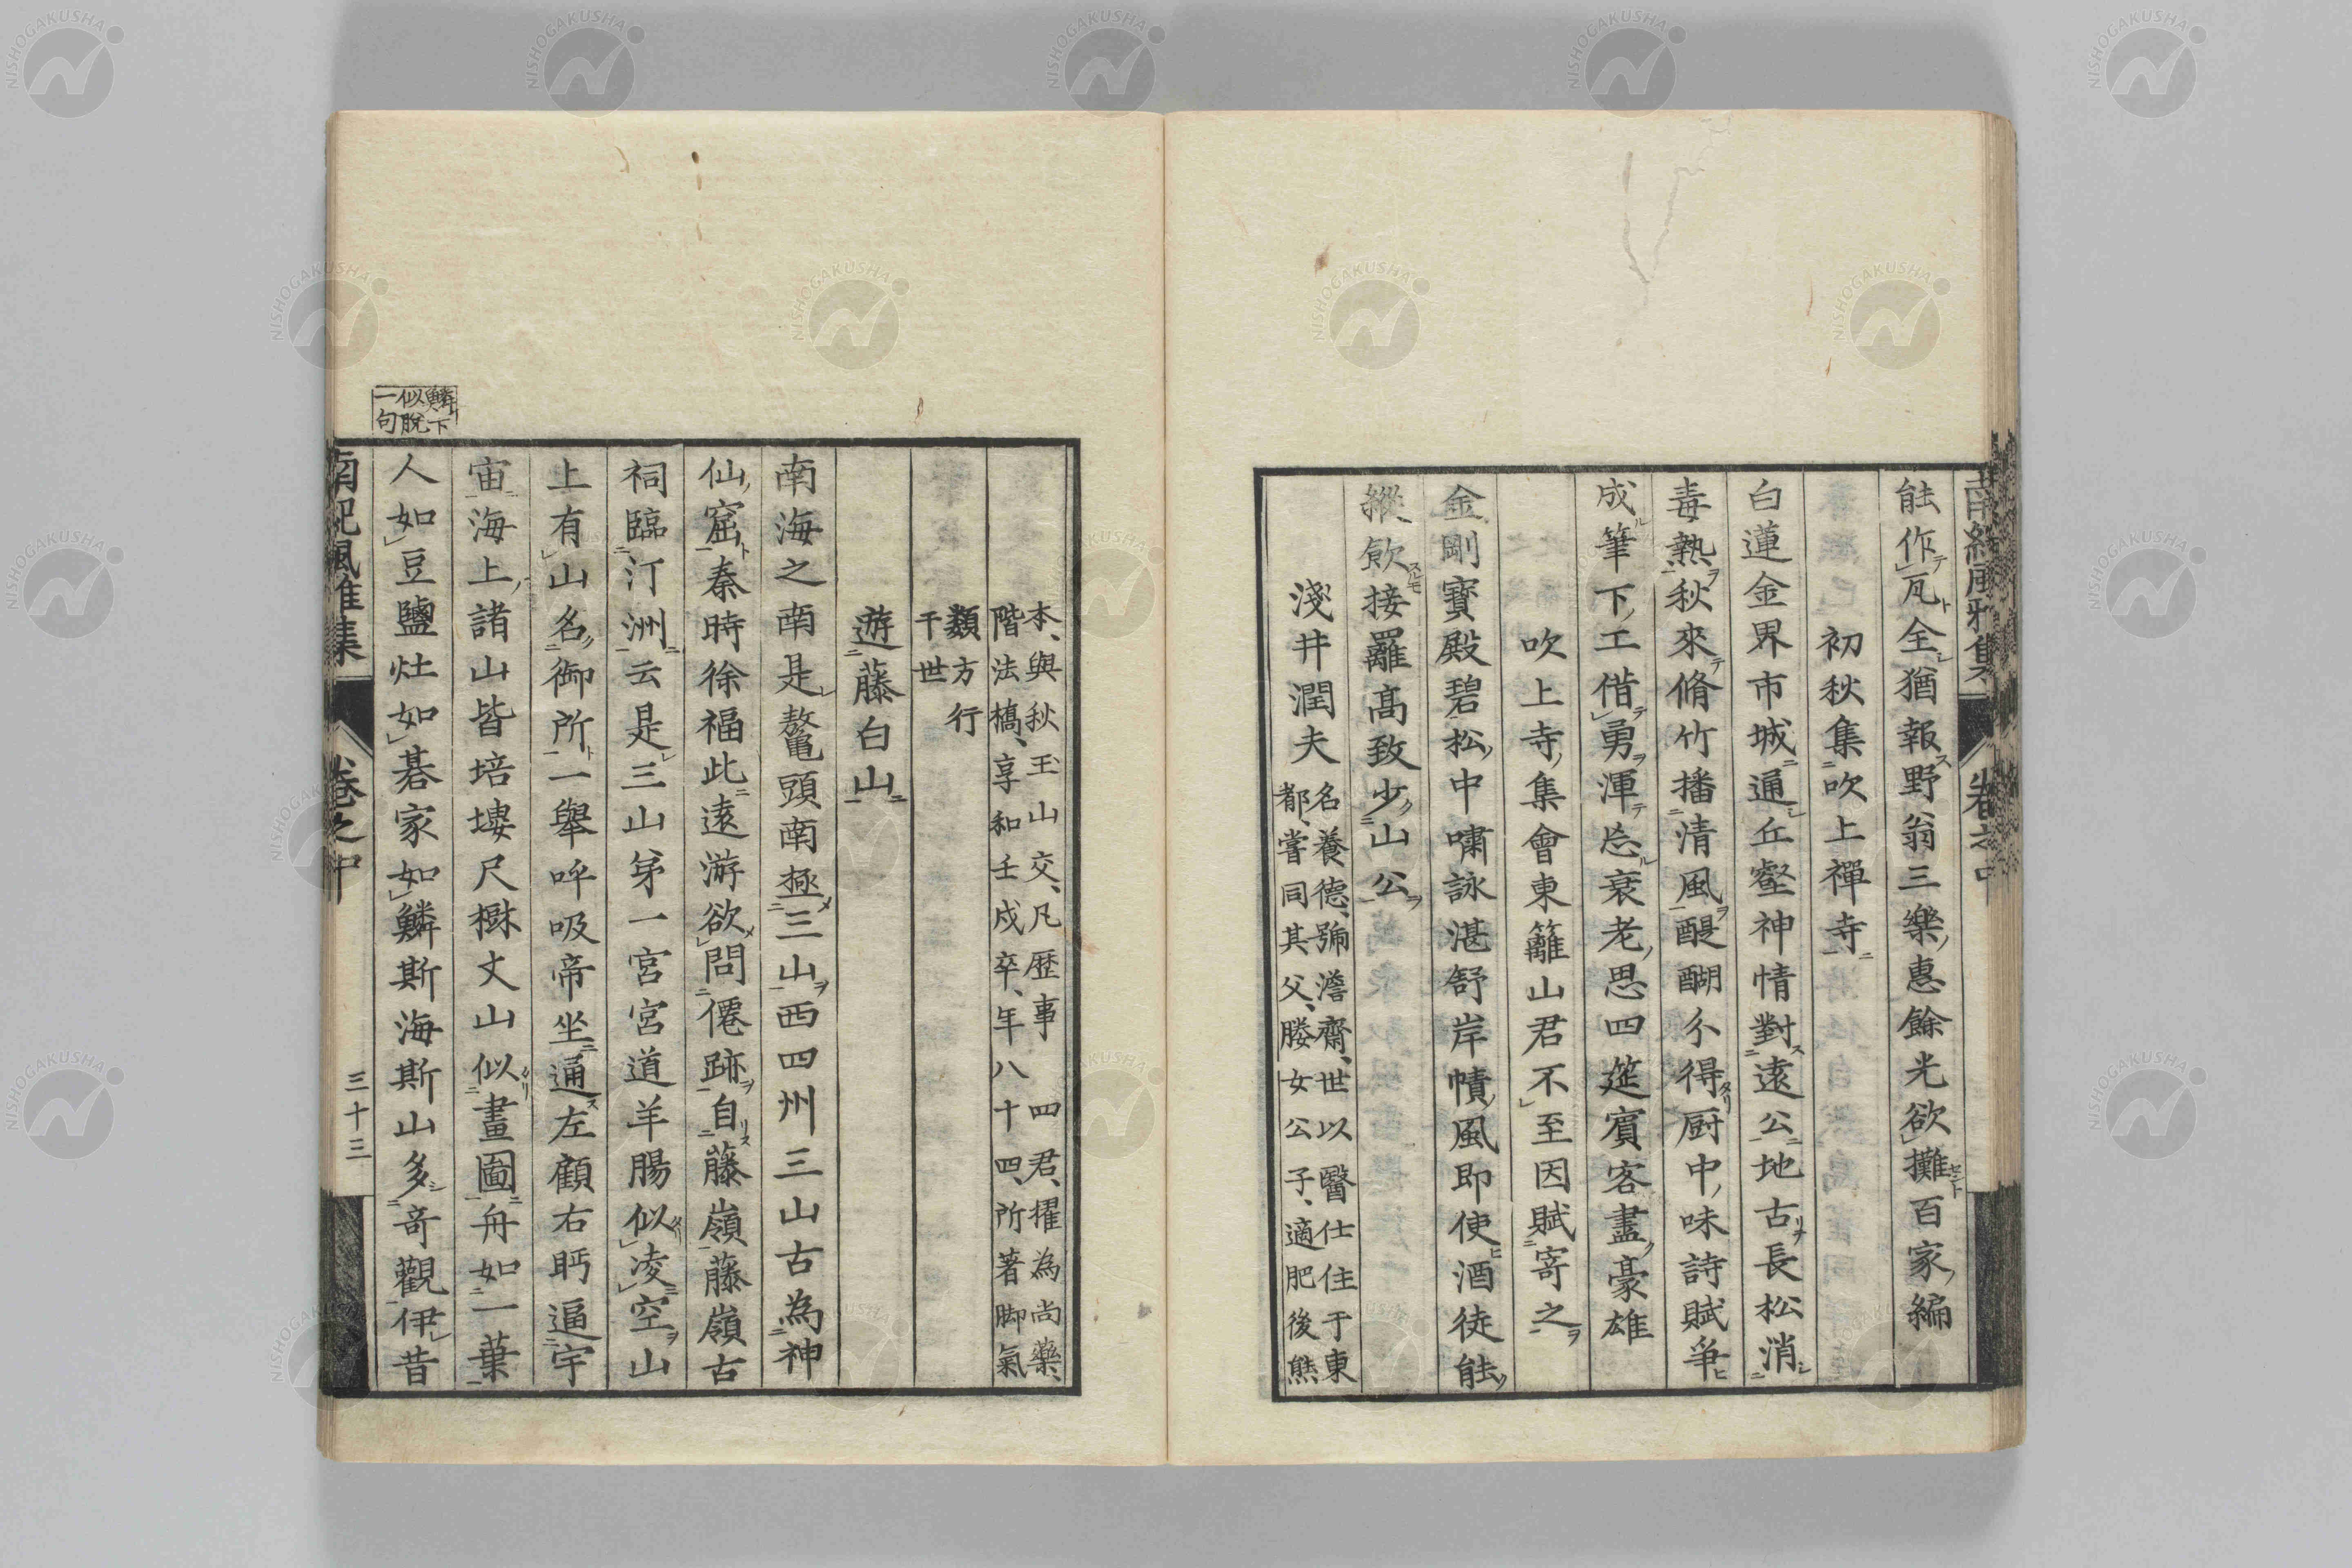 能作瓦全猶報野翁三樂惠餘光欲攤百家編
初秋集吹上禪寺
白蓮金界市城通丘壑神情對遠公地古長松消
毒熱秋來脩竹播清風醍醐分得厨中味詩賦爭
成筆下工借勇渾忘衰老思四筵賓客盡豪雄
吹上寺集會東籬山君不至因賦寄之
金剛寶殿碧松中嘯詠湛舒岸幘風即使酒徒能
縱飲接羅高致少山公
淺井潤夫
名養德、號澹齋、世以醫仕住于東
都、嘗同其父、媵女公子、適肥後熊
本、與秋玉山交、凡歴事四君、擢為尚藥、
階法橋、享和壬戌卒、年八十四、所著脚氣
類方行
于世
遊藤白山
南海之南是鼇頭南極三山西四州三山古為神
仙窟秦時徐福此遠游欲問僊跡自藤嶺藤嶺古
祠臨汀洲云是三山第一宮宮道羊腸似凌空山
上有山名御所一舉呼吸帝坐通左顧右眄逼宇
宙海上諸山皆培塿尺樹丈山似畫圖舟如一葉
人如豆鹽灶如碁家如鱗斯海斯山多奇觀伊昔
鱗下
似脫
一句
南紀風雅集
卷之中
三十三
NISHOGAKUSHA